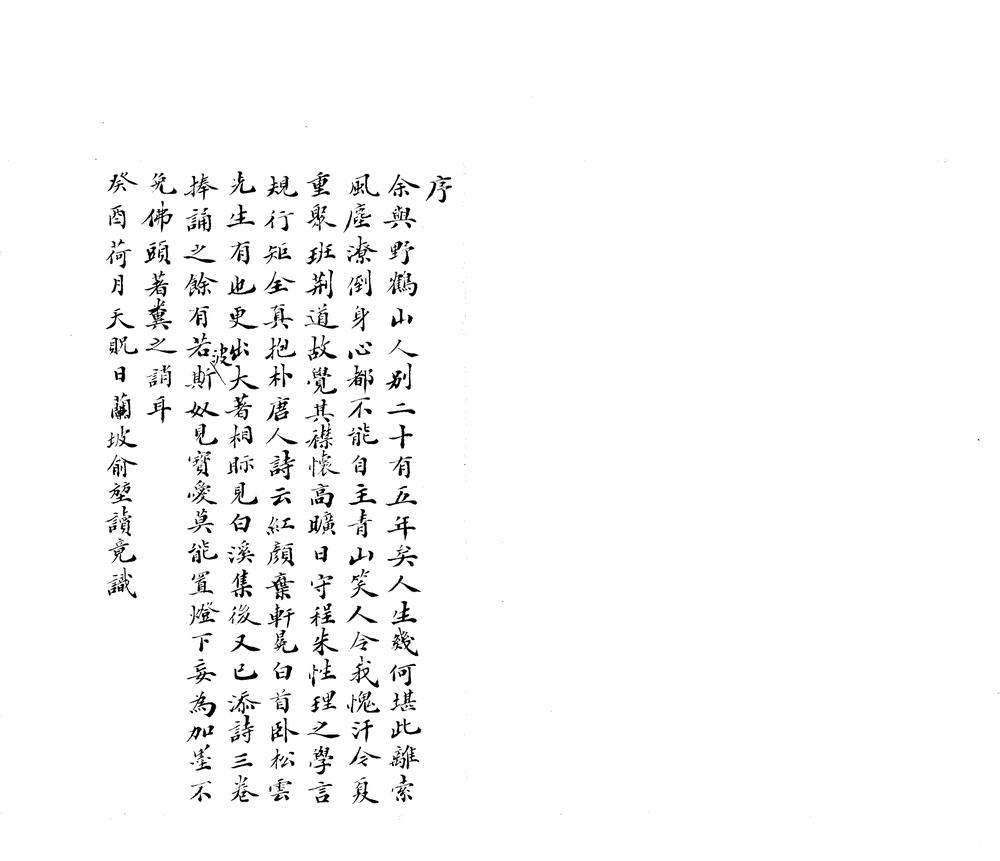 序
余與野鶴山人別二十有五年矣人生幾何堪此離索
風塵潦倒身心都不能自主青山笑人令我愧汗今夏
重聚班荆道故覺其襟懷高曠日守程朱性理之學言
規行矩全真抱朴唐人詩云紅顏棄軒冕白首卧松雲
先生有也更出大著相眎見白溪集後又已添詩三卷
捧誦之餘有若波斯奴見寶愛莫能置燈下妄為加墨不
免佛頭著糞之誚耳
癸酉荷月天貺日蘭坡俞堃讀竟識